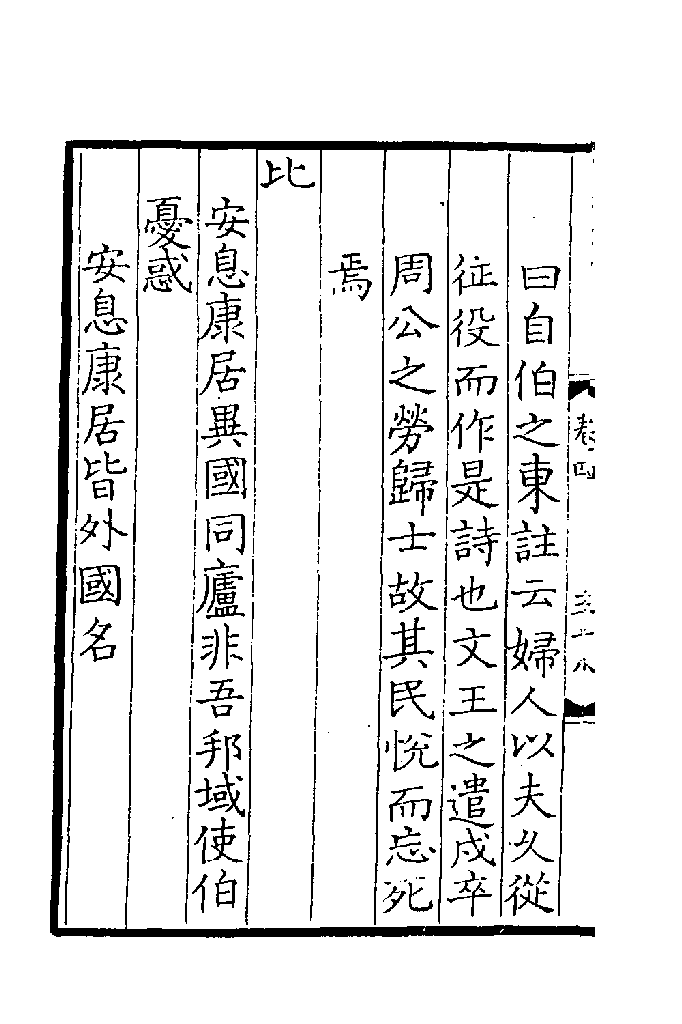 曰自伯之東註云婦人以夫久從
征役而作是詩也文王之遣戍卒
周公之勞歸士故其民悅而忘死
焉
比
安息康居異國同廬非吾邦域使伯
憂惑
安息康居皆外國名
卷四
五十八